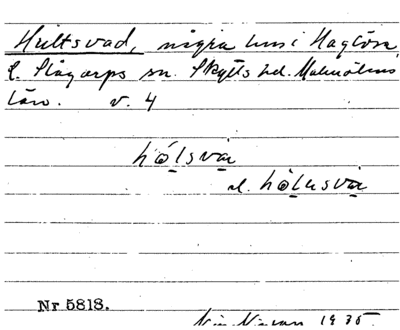 Hultsvad, några hus i Haglösa,
L. Slågarps sn. Skytts hd. Malmöhus
län. v. 4
hó̱lsva̱r
el. hó̱lusva̱r
Nr 5818.
1935